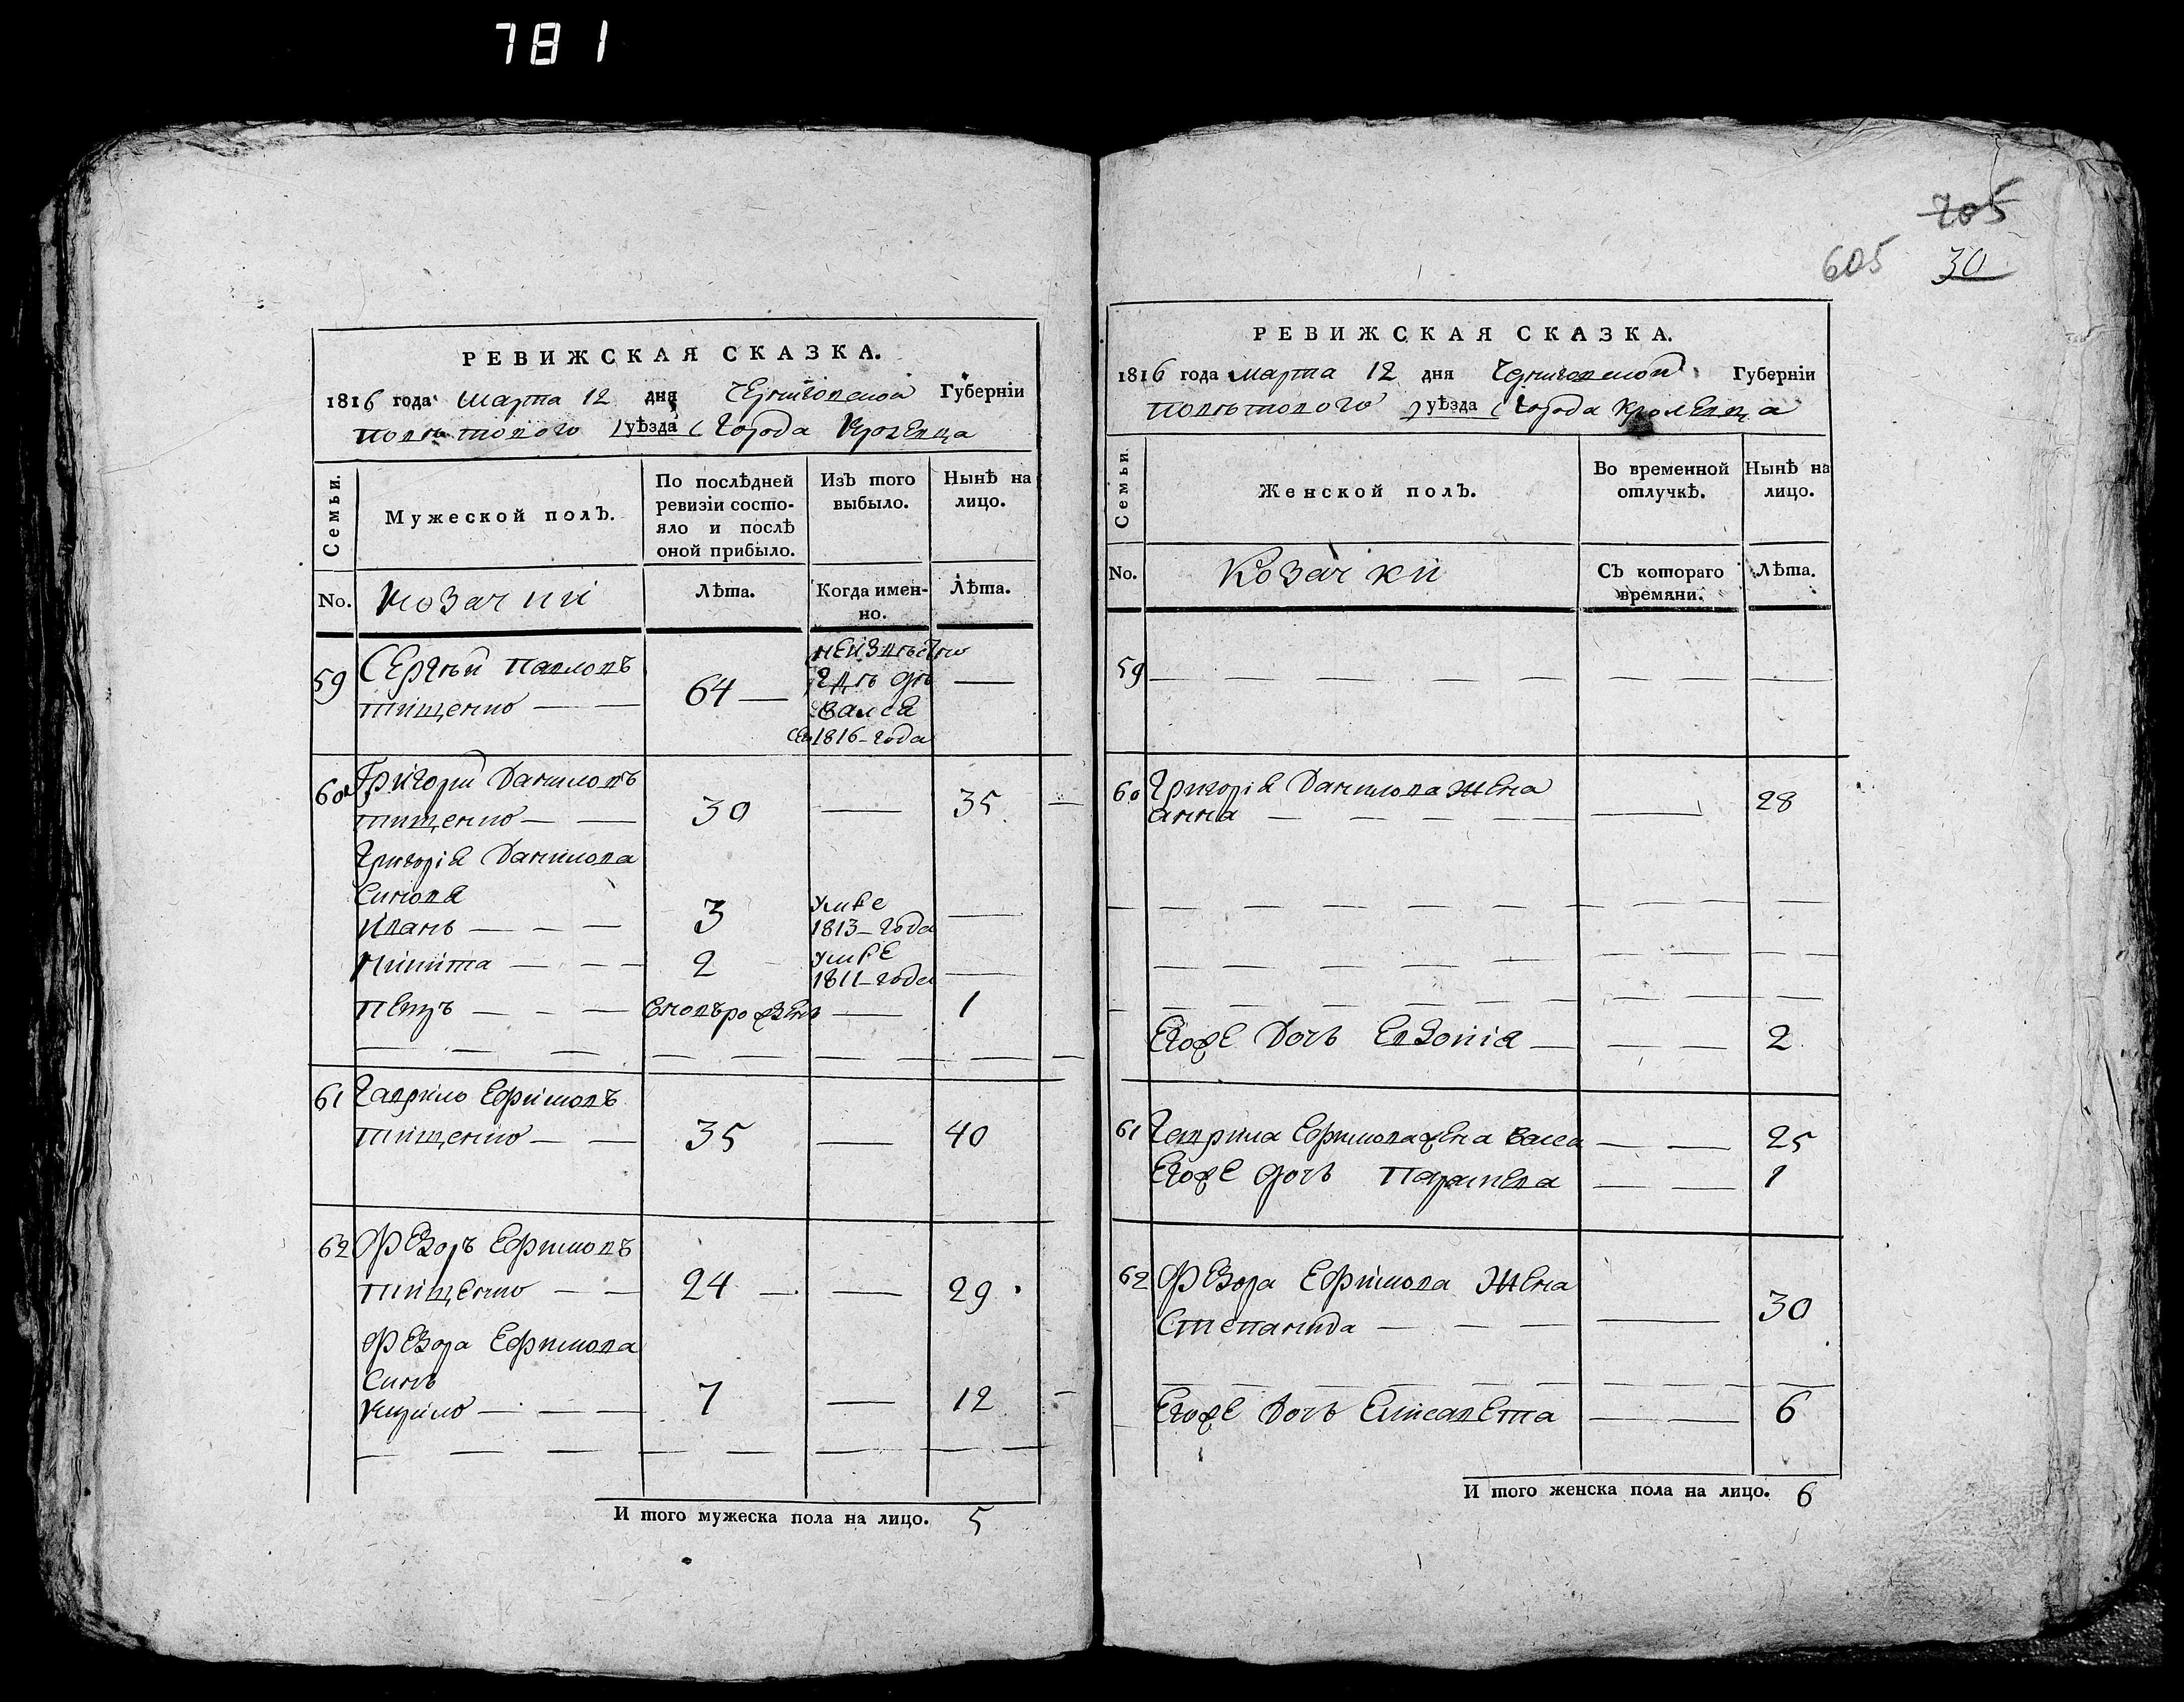 781
705
605 30
РЕВИЖСКАЯ СКАЗКА.
1816 года Марта 12 дня Черниговской Губерніи
Поветового уѣзда Города Кролевца
Семьи.
Мужеской полъ.
По послѣдней ревизіи состо-
яло и послѣ
оной прибыло.
Изъ того
выбыло.
Нынѣ на
лицо.
No.
Козачки
Лѣта.
Когда имен-
но.
Лѣта.
59 Сергѣй Павловъ
Тищенко — — 64 —
неизвѣстно
где дѣ
вался
1816 - года
—
60 Григорій Даниловъ
Тищенко — — 30 — 35
Григорія Данилова
Синовя
Иванъ — — — 3 умре
1813 - года —
Микита — — — 2 умре
1811 - года —
Петръ — — — вновьрожденъ — 1
61 Гаврило Ефимовъ
Тищенко — — 35 — 40
62 Федоръ Ефимовъ
Тищенко — — 24 — — 29
Федора Ефимова
Синъ
Кирило — — — 7 — 12
И того мужеска пола на лицо. 5
РЕВИЖСКАЯ СКАЗКА.
1816 года Марта 12 дня Черниговской Губерніи
Поветового уѣзда Города Кролевца
Семьи.
Женской полъ.
Во временной
отлучкѣ.
Нынѣ на
лицо.
No.
Козачки
Съ котораго
времяни.
Лѣта.
59 — — — — — — — —
60 Григорія Данилова жена
Анна — — — — — 28
Егоже дочь Евдокія — — — 2
61 Гаврила Ефимова жена Васса — — 25
Егоже дочь Параскева — — 1
62 Федора Ефимова жена
Степанида — — — — 30
Егоже дочь Елисавета — — 6
И того женска пола на лицо. 6